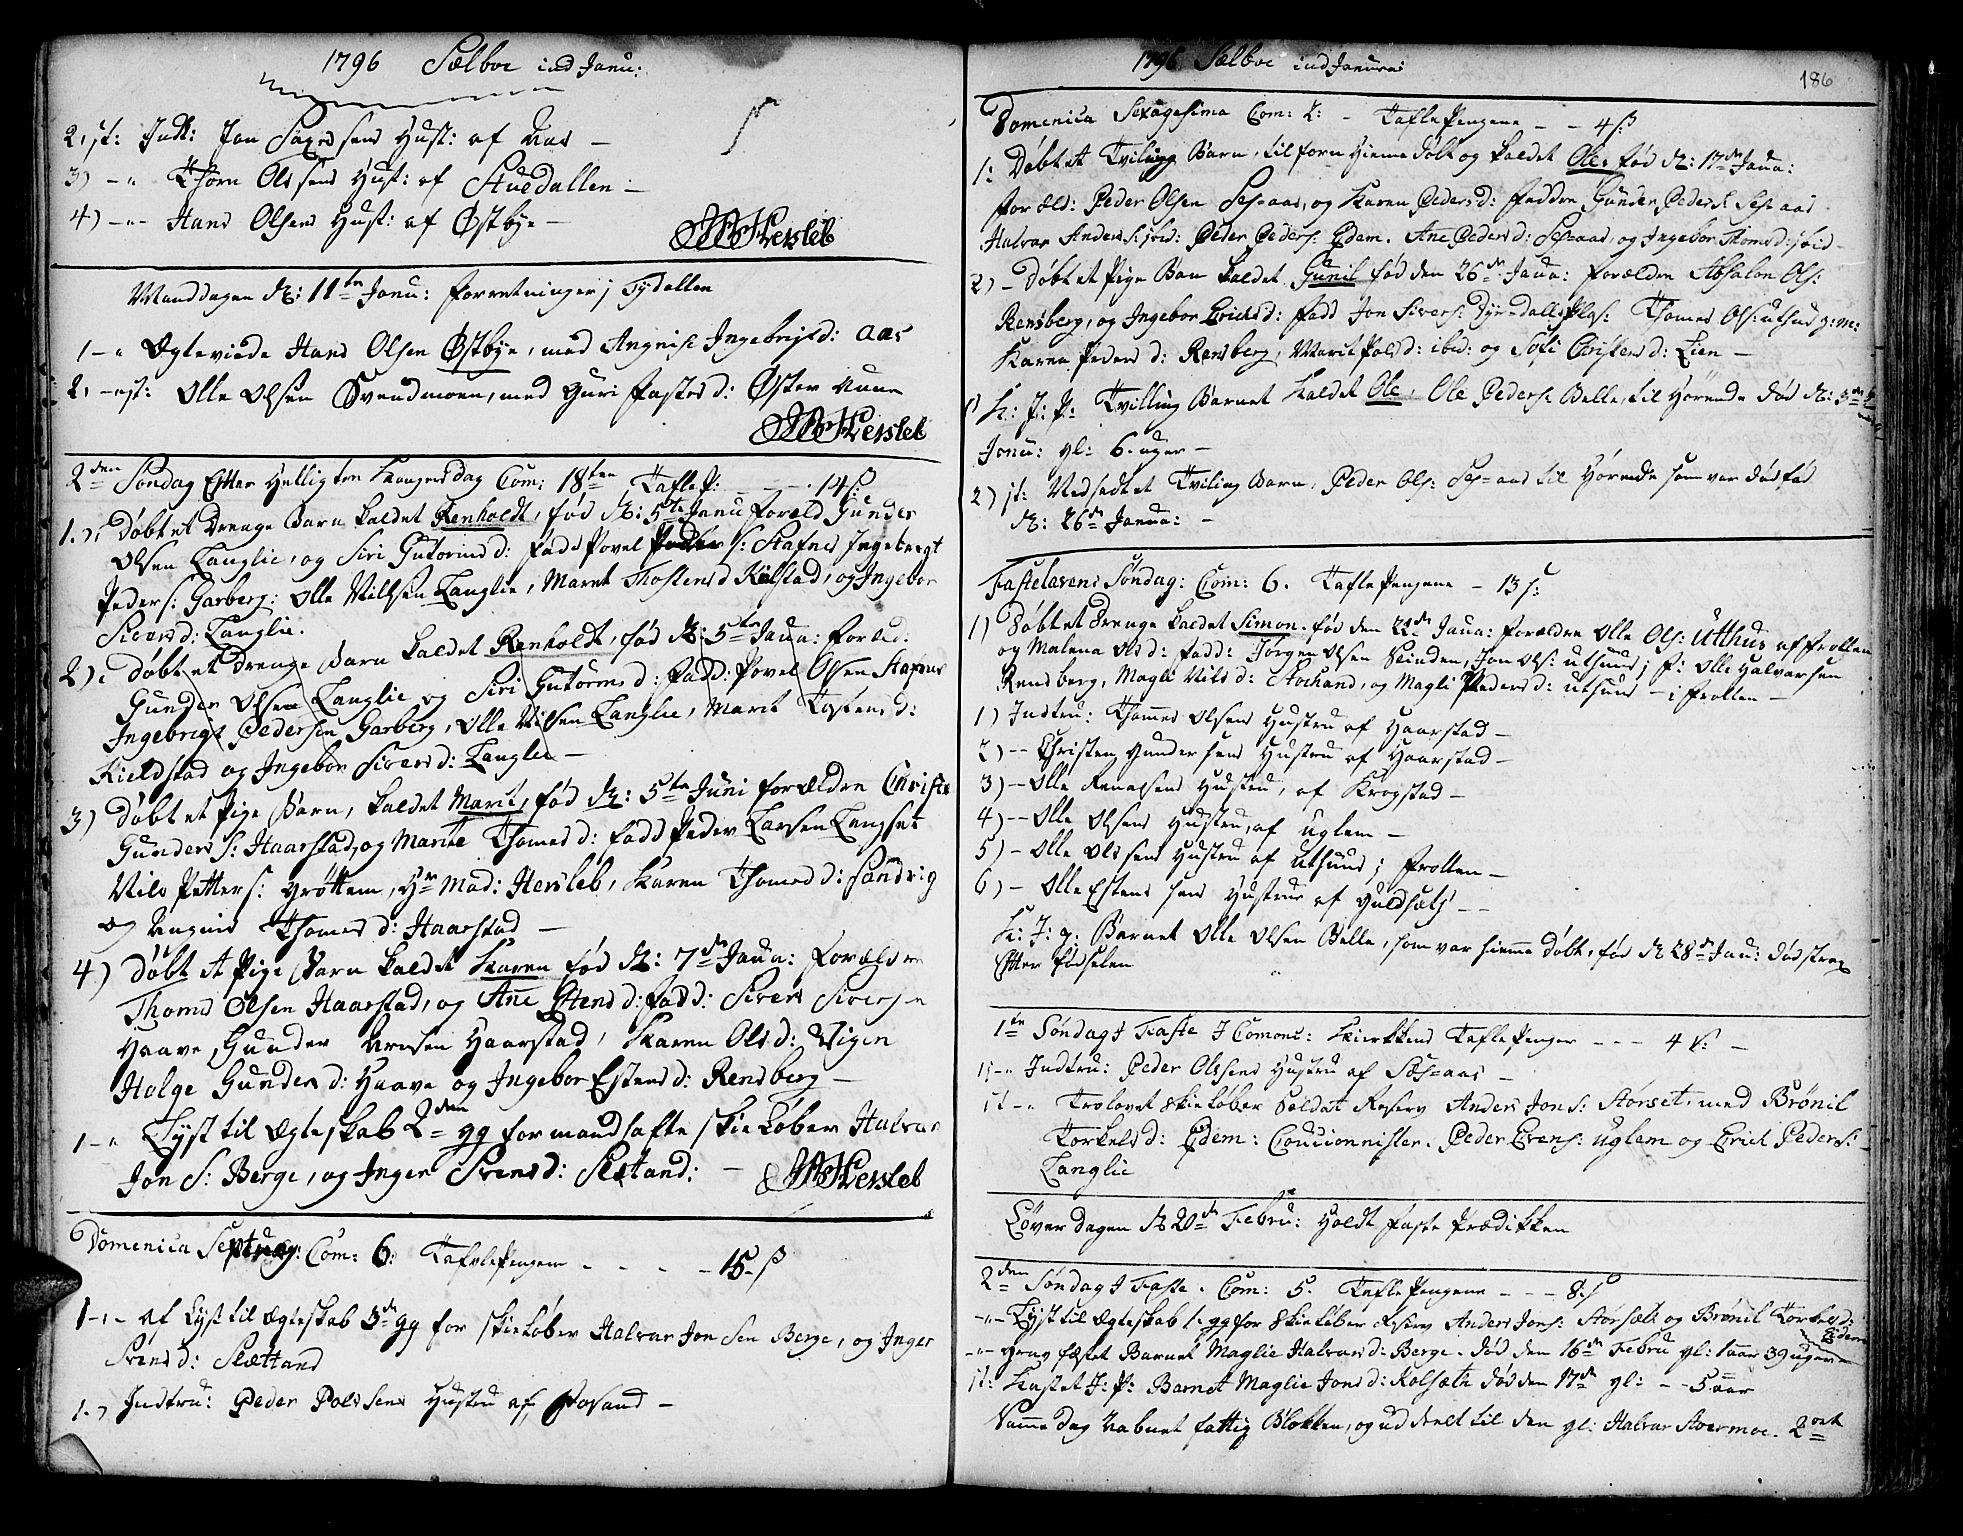 1796 Sælboe ind Janu:
2, st: Indt: Jon Saxessens Hust: af Aas –
3) –„ Thorn Olssens Hust: af Stuedallen –
4) –„– Hans Olsens Hust: af Østbye –
Hersleb
Manddagen d: 11te Janu: Forretninger i Tydallen
1 –„ Ægteviede Hans Olsen Østbye, med Angnise Ingebrigtsd: Aas
2, –st: Olle Olsen Svendmoen, med Guri Fastesd: Østeraune
Hersleb
2den Søndag Efter Hellig tre Kongers dag Com: 18ten Tafle P: – – – 14 s:
1.) Døbt et Drenge Barn kaldet Renholdt, fød d: 5te Janu Foræld Gunder
Olsen Langlie, og Siri Gutormsd: Fadd Povel s: Stafnes Ingebrigt
Peders: Garberg: Olle Nillsen Langlie, Maret Thostensd Kielstad, og Ingebor
Siversd: Langlie.
2) Døbt et Drenge Barn kaldet Renholdt, fød d: 5te Jaua: Foræld:
Gunder Olsen Langlie og Siri Gutormsd: Fadd: Povel Olsen Stafnes
Ingebrigt Pedersen Garberg, Olle Nilsen Langlie, Marit Tostensd:
Kieldstad og Ingebor Siversd: Langlie –
3) Døbt et Pige Barn, kaldet Marit, fød d: 5te Juni Forældre Christe
Gunders s: Haarstad, og Marite Thomesd: Fadd Peder Larsen Langset
Nils Petter s: Grøttem, Hr Mad: Hersleb, Karen Thomesd: Sandvig
og Angnis Thomesd: Haarstad –
4) Døbt et Pige Barn kaldet Karen fød d: 7de Jaua: Forældre
Thoms Olsen Haarstad, og Ane Estensd: Fadd: Sivers Siversen
Haave, Gunder Arnsen Haarstad, Karen Olsd: Vigen
Holge Gundersd: Haave og Ingebor Estensd: Rensberg –
1 –„ Lyst til Ægteskab 2den gg for mandhafte Skieløber Halvar
Jon S: Berge, og Inger Svensd: Slættand: –
Hersleb
Domenica Septuag: Com: 6: Tafle Pengene – – – – 15 s
1 –„– af Lyst til Ægteskab 3de gg for Skieløber Halvar Jonsen Berge, og Inger
Svensd: Slættand
1.) Indtru: Peder Polssens Hustru af Fosand –
1796 Sælboe ind Januarii
186
Domenica Sexagesima Com: 2: – Tafle Pengene – – 4 s:
1: Døbt et Tviling Barn, tilforn hiemme døbt og kaldet Ole, fød d: 17de Jaua:
Foræld: Peder Olsen Sesaas, og Karen Pedersd: Faddre Gunder Peders Sesaas
Halvar Anders: ibid: Peder Peders: Edem. Ane Pedersd: Sesaas, og Ingebor Thomsd: ibid –
2) – Døbt et Pige Ban kaldet Gunil fød den 26de Jaua: Forældre Absalon Ols:
Rensberg, og Ingebor Ericksd: Fadd Jon Sivers: Dyrdalls Plas: Thomes Ols: uthus g: m:
Karen Pedersd: Rensberg, Marit Polsd: ibid: og Sofi Christensd: Lien –
1) K: J: P: Tvilling Barnet kaldet Ole, Ole Peders: Belle, til hørende død d: 3de
Janu: gl: 6. uger –
2) st: Nedsadt et Tviling Barn, Peder Ols: Sesaas til hørende som var død fød
d: 26de Janua: –
Fastelavens Søndag: Com: 6. Tafle Pengene – 13 s:
1) Døbt et Drenge kaldet Simon. fød den 22de Jaua: Forældre Olle Ols: Utthus af Frollen
og Malena Olsd: Fadd: Jørgen Olsen Slinden, Jon Ols: uthuus i F: Olle Halvarsen
Rensberg, Magli Nilsd: Stochand, og Magli Pedersd: uthuus – i Frollen –
1) Indtru: Thomes Olsens Hustru af Haarstad –
2) –– Christen Gundersens Hustru af Haarstad –
3) – Olle Renalsens Hustru, af Krogstad –
4) –– Olle Olsens Hustru, af Uglem –
5) – Olle Olssens Hustru af Uthuus i Frollen –
6) – Olle Estens sens Hustrue af Guldsets – –
K: J: P: Barnet Olle Olsen Belle, som var hiemme døbt, fød d 28de Jau: død strax
Efter Fødselen
1te Søndag i Faste I Comone: Kierkkens Tafle Penger – – – 4 s: –
1) –„ Indtru: Peder Olssens Hustru af Sæsaas –
st –„ Trolovet Skieløber Soldat Reserv Anders Jon s: Størset, med Brønil
Torkelsd: Edem: Coucionnister. Peder Evens: Uglem og Erich Peders:
Langlie
Løverdagen d 20de Febru: Holdt Faste Prædikken
2den Søndag i Faste. Com: 5. Tafle Pengene – – – 8 s
–„– Lyst til Ægteskab 1. gg for Skieløber Reserv Anders Jons: Størsæt og Brønil Torkelsd:
Edem
–„– Grav fæset Barnet Maglie Halvarsd: Berge. død den 16de Febru gl: 1 aar 39 uger
st: Kastet J: P: Barnet Maglie Jonsd: Kolsæth død den 17de gl: – – 5 aar
Samme dag Aabnet fattig Blokken, og uddeelt til den gl: Halvar Stoermoe. 2 ort